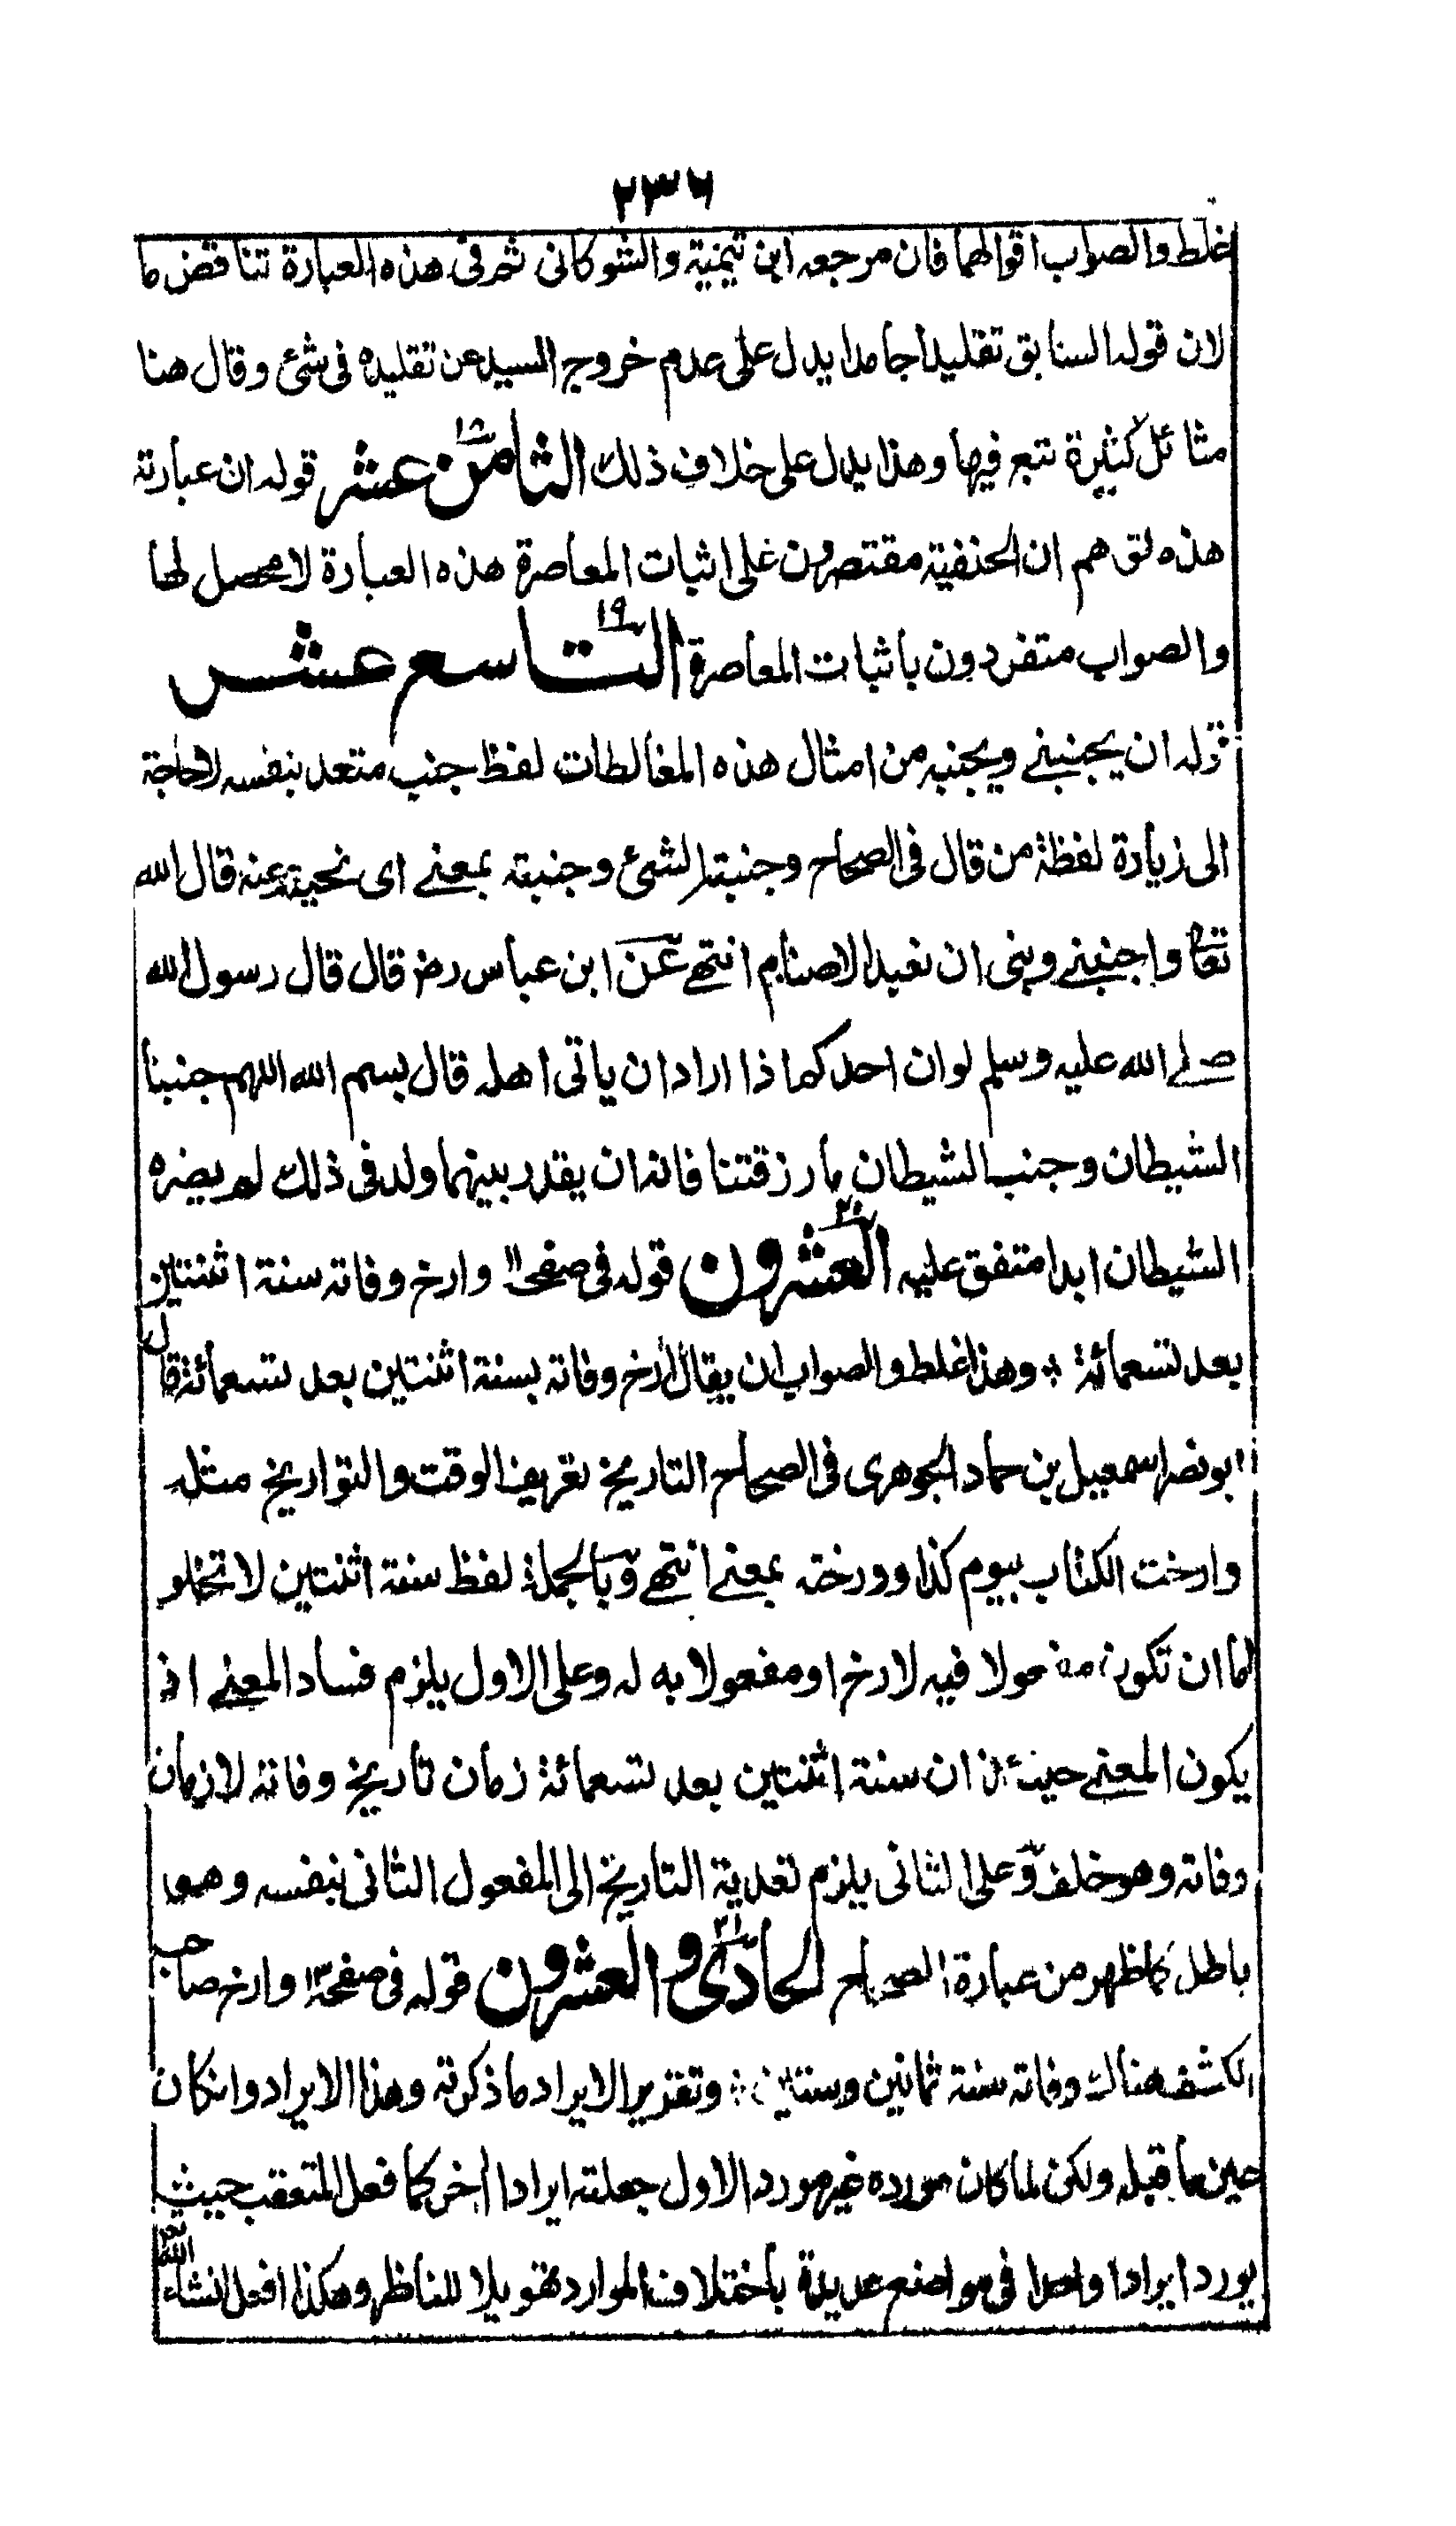 ٢٣٦
غلط والصواب اقوالهما فان مرجعه ابن تيمية والشوكانى ثم فى هذه العبارة تناقض ما
لان قوله السابق تقليدا جامدا يدل على عدم خروج السيد عن تقليده فى شئ وقال هنا
مسائل كثيرة تبع فيها وهذا يدل على خلاف ذلك الثامن عشر ١٨ قوله ان عبارته
هذه توهم ان الحنفية مقتصرون على اثبات المعاصرة هذه العبارة لا محصل لها
والصواب متفردون باثبات المعاصرة التاسع عشر ١٩
قوله ان يجنبنے ويجنبه من امثال هذه المغالطات لفظ جنب متعد بنفسه لا حاجة
الى زيادة لفظة من قال فى الصحاح وجنبته الشئ وجنبته بمعنے اى نحيته عنه قال الله
تعا واجنبنے وبنى ان نعبد الاصنام انتهے عن ابن عباس رض قال قال رسول الله
صلے الله عليه وسلم لو ان احدكم اذا اراد ان ياتى اهله قال بسم الله اللهم جنبنا
الشيطان وجنب الشيطان ما رزقتنا فانه ان يقدر بينهما ولد فى ذلك لم يضره
الشيطان ابدا متفق عليه العشرون ٢٠ قوله فى صفحة ١١ وارخ وفاته سنة اثنتين
بعد تسعمائة ؞ وهذا غلط والصواب ان يقال ارخ وفاته بسنة اثنتين بعد تسعمائة قال
ابو نصر اسمعيل بن حماد الجوهرى فى الصحاح التاريخ تعريف الوقت والتواريخ مثله
وارخت الكتاب بيوم كذا وورخته بمعنے انتهے وبالجملة لفظ سنة اثنتين لا تخلو
اما ان تكون مفعولا فيه لارخ او مفعولا به له وعلى الاول يلزم فساد المعنے اذ
يكون المعنے حينئذ ان سنة اثنتين بعد تسعمائة زمان تاريخ وفاته لا زمان
وفاته وهو خلف وعلى الثانى يلزم تعدية التاريخ الى المفعول الثانى بنفسه وهو
باطل كما ظهر من عبارة الصحاح الحادى والعشرون ٢١ قوله فى صفحة ١٣ وارخ صاحب
الكشف هناك وفاته سنة ثمانين وستين ؞ وتقرير الايراد ما ذكرته وهذا الايراد وانكان
عين ما قبله ولكن لما كان مورده غير مورد الاول جعلته ايرادا اخر كما فعل المتعقب حيث
يورد ايرادا واحدا فى مواضع عديدة باختلاف الموارد تهويلا للناظر وهكذا افعل انشاء الله